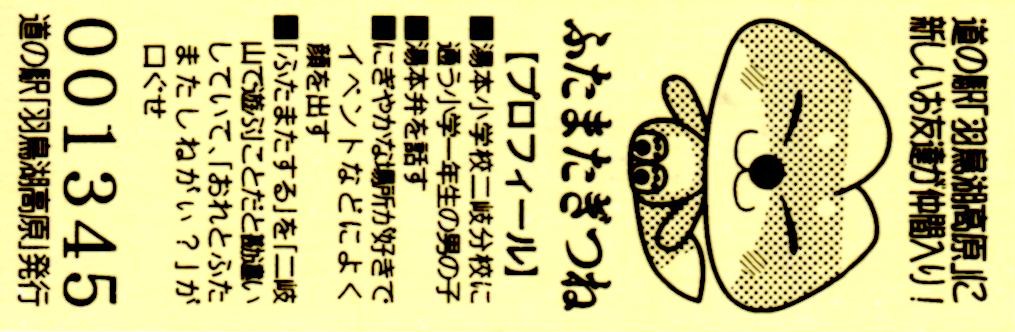 道の駅「羽鳥湖高原」に
新しいお友達が仲間入り！
ふたまたぎつね
【プロフィール】
■湯本小学校二岐分校に
通う小学一年生の男の子
■湯本弁を話す
■にぎやかな場所が好きで
イベントなどによく
顔を出す
■「ふたまたする」を「二岐
山で遊ぶ」ことだと勘違い
していて、「おれとふた
またしねがい？」が
口ぐせ
001345
道の駅「羽鳥湖高原」発行